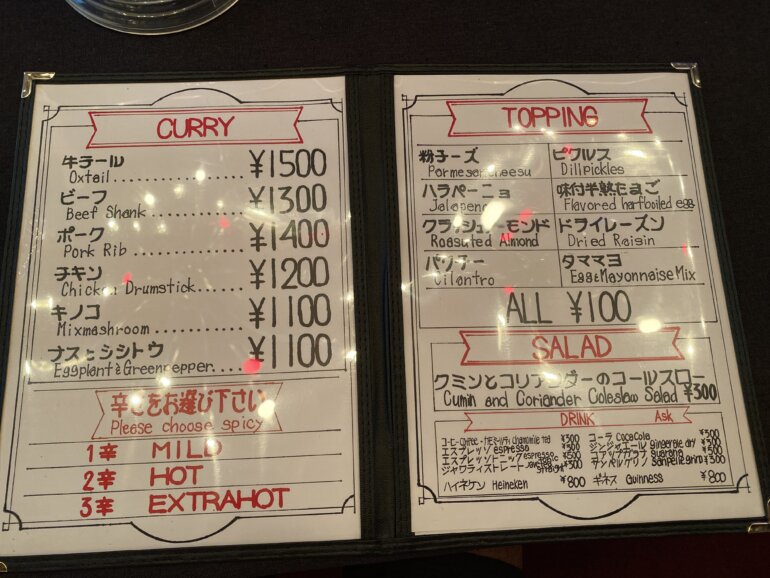 CURRY
牛テール
Oxtail ¥1500
ビーフ
Beef Shank ¥1300
ポーク
Pork Rib ¥1400
チキン
Chicken Drumstick ¥1200
キノコ
Mixmashroom ¥1100
ナスとシシトウ
Eggplant & Greenpepper ¥1100
辛さをお選び下さい
Please choose spicy
1辛 MILD
2辛 HOT
3辛 EXTRAHOT
TOPPING
粉チーズ
Parmesancheesu
ピクルス
Dillpickles
ハラペーニョ
Jalapeno
味付半熟たまご
Flavored harfboiled egg
クラッシュアーモンド
Roasuted Almond
ドライレーズン
Dried Raisin
パクチー
Cilantro
タママヨ
Egg & Mayonnaise Mix
ALL ¥100
SALAD
クミンとコリアンダーのコールスロー
Cumin and Coriander Coleslaw Salad ¥300
DRINK Ask
コーヒーCoffee・カモミールティ chamomile tea ¥300
エスプレッソ espresso ¥300
エスプレッソトニック espresso tonic ¥500
straight ¥300
コーラ CocaCola ¥300
ジンジャエール gingerale dry ¥300
guarana ¥500
サンペルグリノ sanpellegrino ¥300
ハイネケン Heineken ¥800
ギネス Guinness ¥800